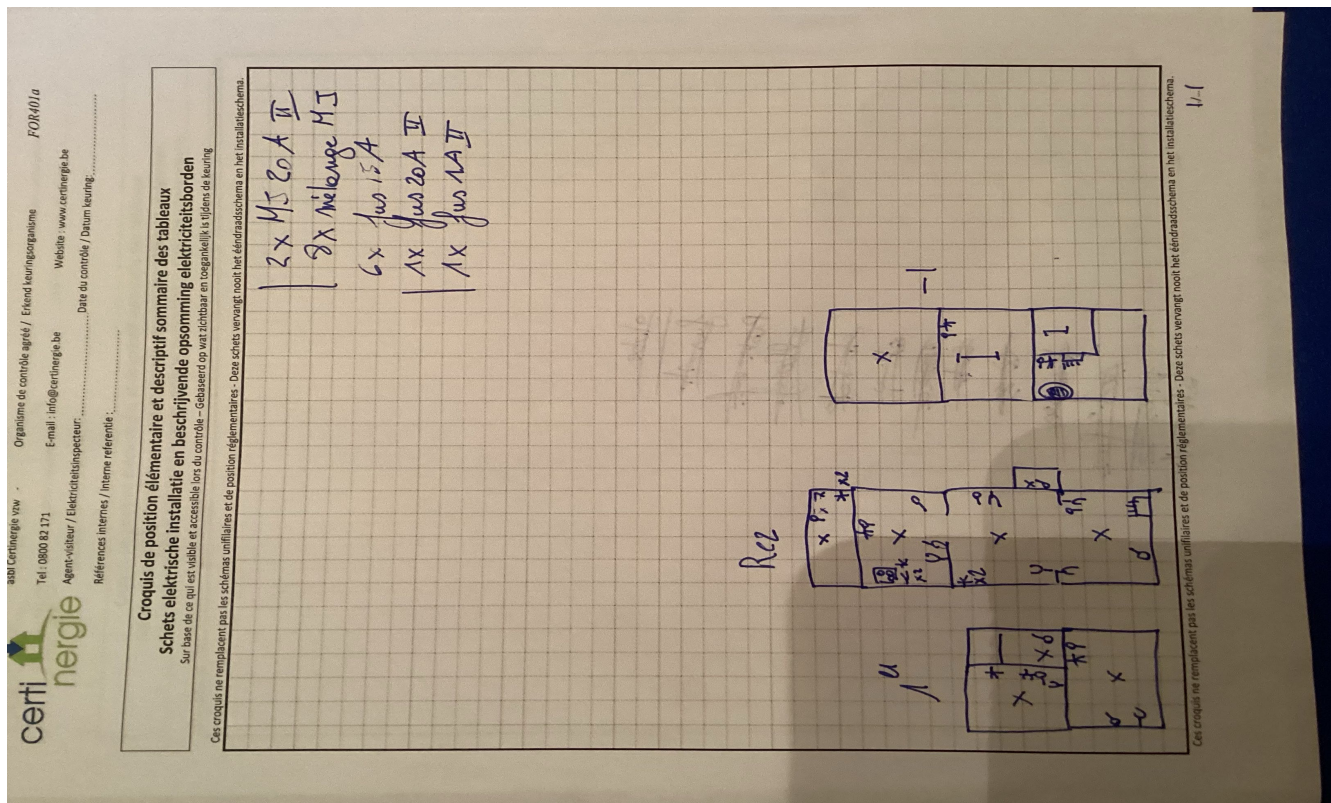 certi
nergie
asbl Certinergie vzw - Organisme de contrôle agréé / Erkend keuringsorganisme FOR401a
Tel : 0800 82 171 E-mail : info@certinergie.be Website : www.certinergie.be
Agent-visiteur / Elektriciteitsinspecteur: Date du contrôle / Datum keuring:
Références internes / Interne referentie :
Croquis de position élémentaire et descriptif sommaire des tableaux
Schets elektrische installatie en beschrijvende opsomming elektriciteitsborden
Sur base de ce qui est visible et accessible lors du contrôle – Gebaseerd op wat zichtbaar en toegankelijk is tijdens de keuring
Ces croquis ne remplacent pas les schémas unifilaires et de position réglementaires - Deze schets vervangt nooit het ééndraadsschema en het installatieschema.
2x MJ 20A II
mélange MJ
6x fus 15A
1x fus 20A II
1x fus 1A II
-1
x2
x2
x2
Ces croquis ne remplacent pas les schémas unifilaires et de position réglementaires - Deze schets vervangt nooit het ééndraadsschema en het installatieschema.